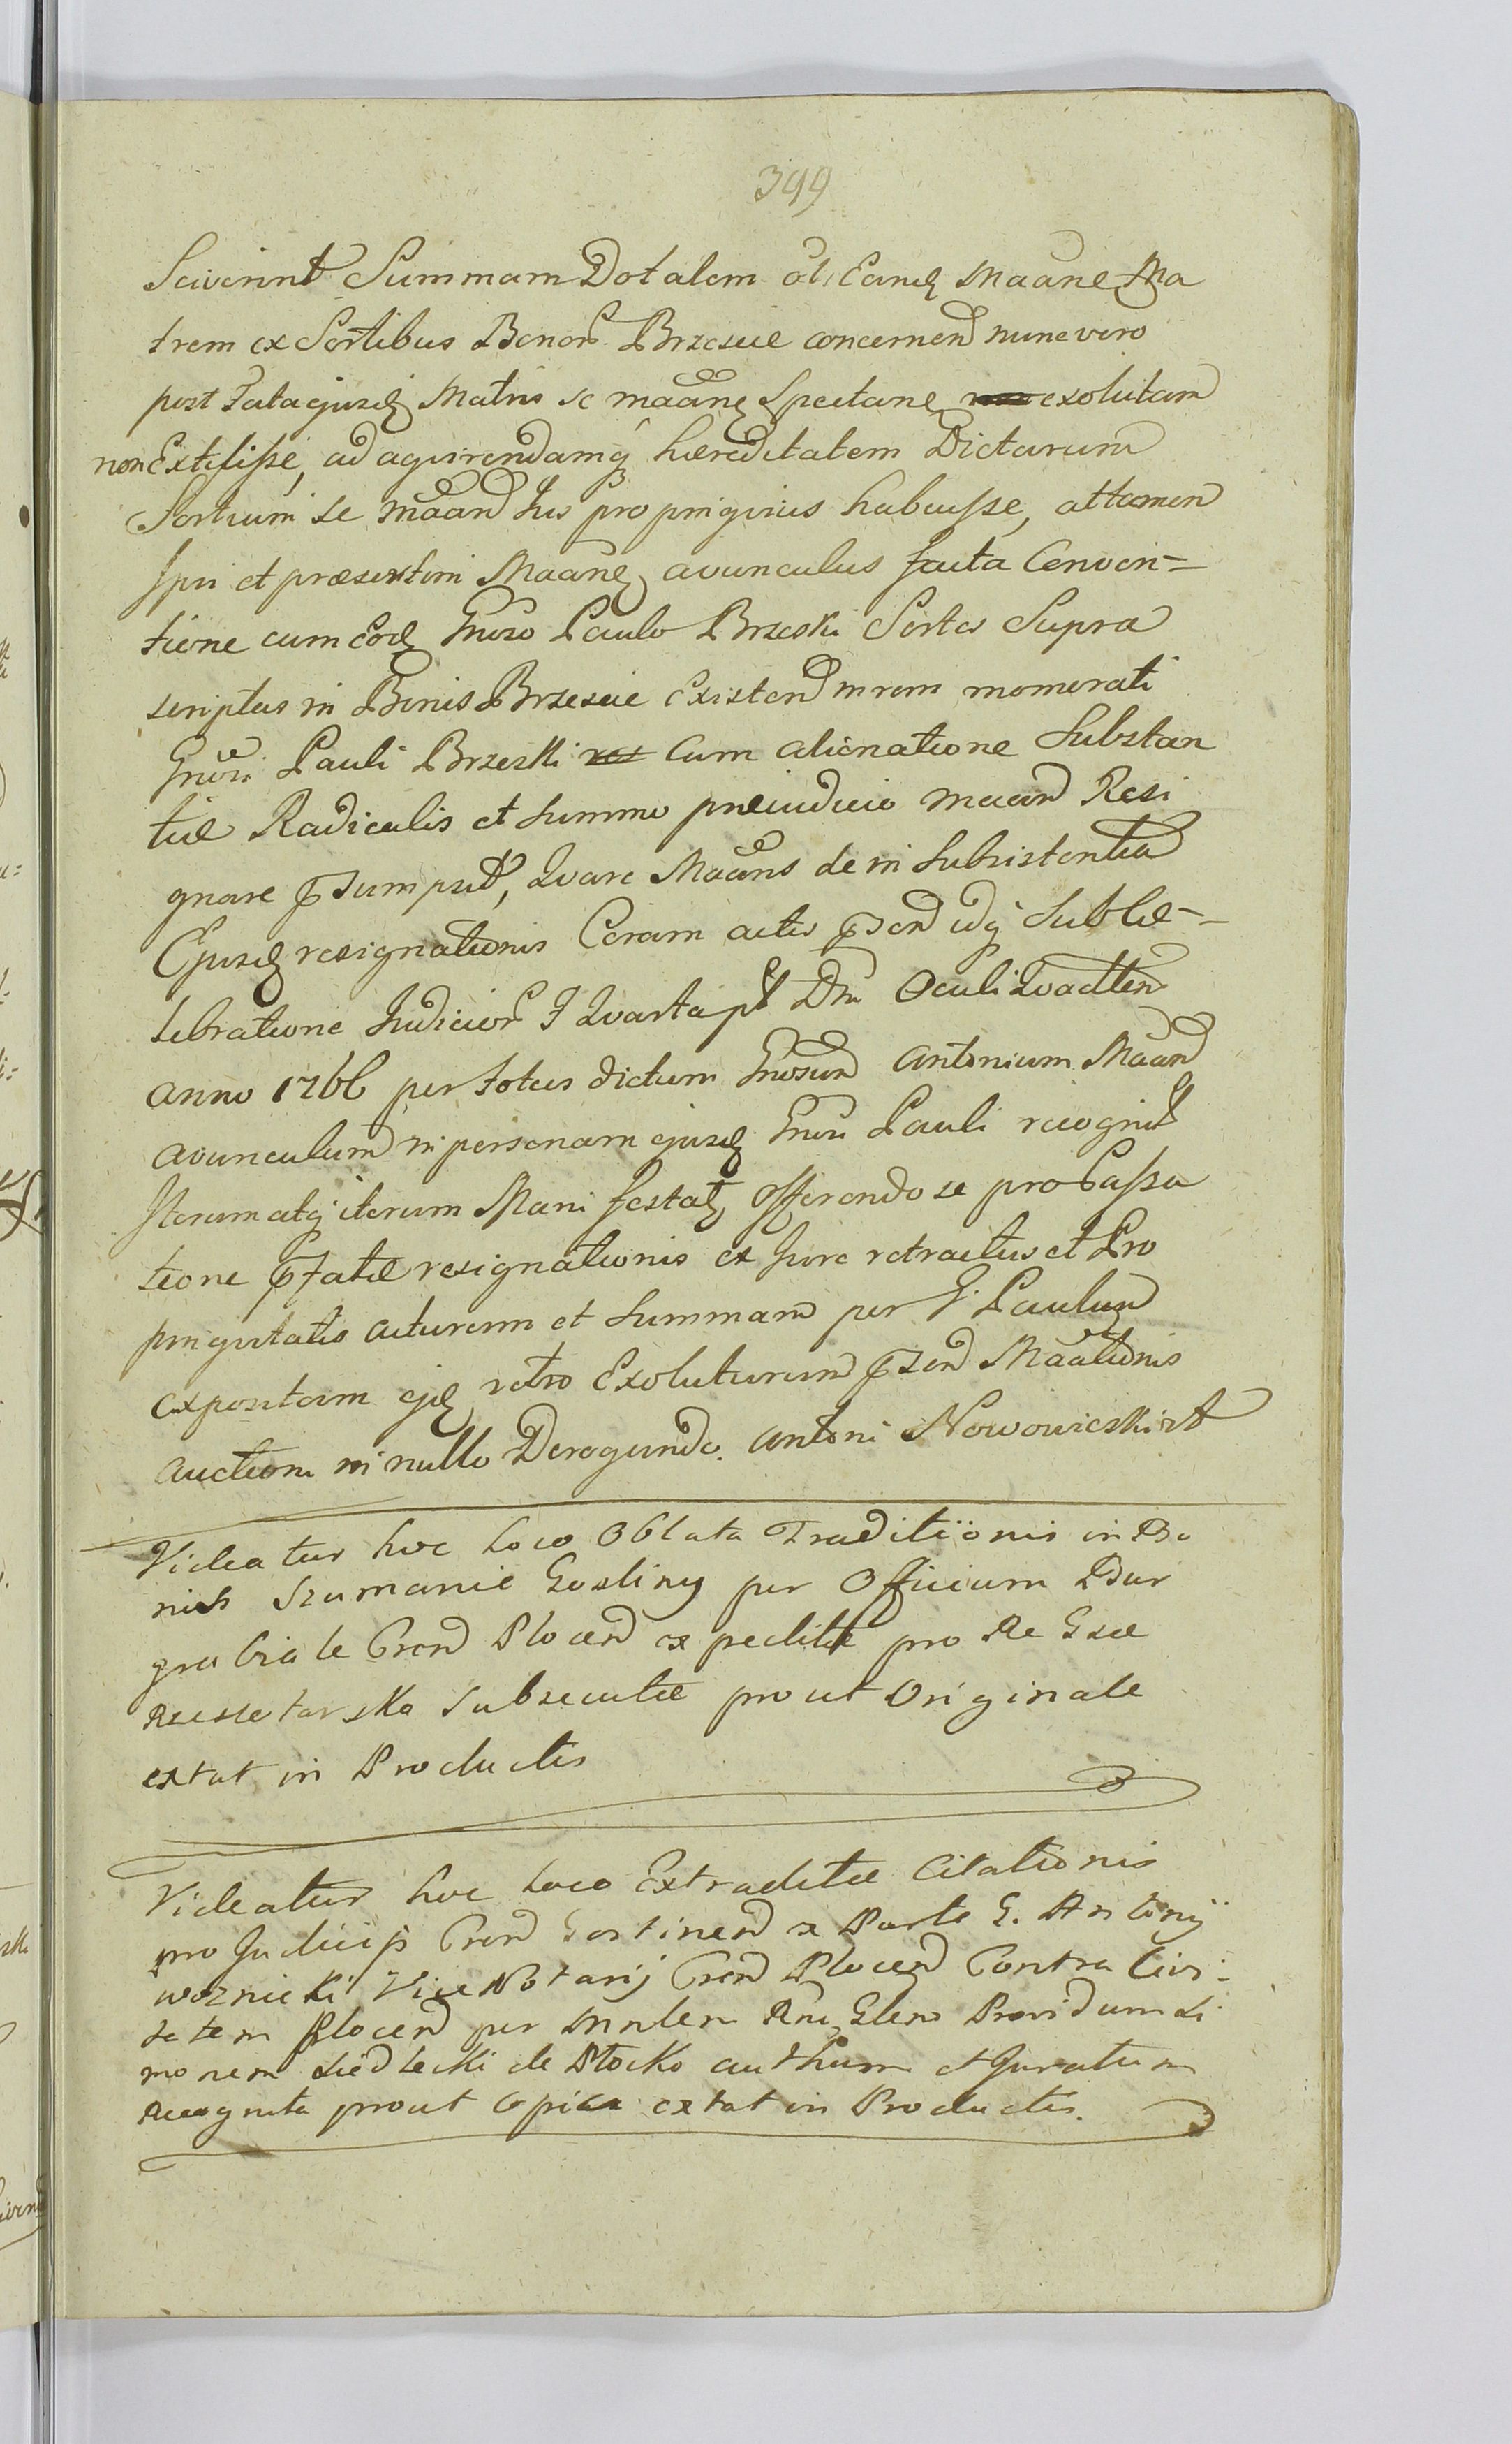 399
Sciverint Summam Dotalem ob Eand Maane Ma
trem ex Sortibus Bonor Brzescie concernen nunc vero
post Fata ejusd Matris se maane Spectane exolutam
non Extitisse, ad aquirendamq hæreditatem Dictarum
Sortium se Maan Jus propinquius habuisse, attamen
Ipsi et præsertim Maane avunculus facta Conven=
tione cum Eod Gnoso Paulo Brzeski Sortes Supra
scriptas in Bonis Brzescie Existen in rem memorati
Gnosi Pauli Brzeski cum alienatione Substan
tiæ Radicalis et Summo præiudicio maan Resi
gnare præsumpsit, Quare Maans de in Subsistentia
Ejusd resignationis Coram actis præsen idq Sub Ce=
lebratione Judicior F Quarta pt Dni Oculi Quadlen
Anno 1766 per totus dictum Gnosum Antonium Maan
avunculum in personam ejusd Gnosi Pauli recognit
Iterum atq iterum Mani festat, offerendo se pro Cassa
tione præfatæ resignationis ex Jure retractus et Pro
pinquitatis acturum et Summam per G. Paulum
expositam ejd retro Exoluturum præsen Maationis
auctione in nullo Derogando. Antoni Nowowieski
Videatur hoc Loco Oblata Traditionis in Bo
nis Szumanie Gosliny per Officium Bur
grabiale Cren Plocen expeditæ pro Re Gsæ
Rzeszetarska Subsecutæ prout Originale
extat in Productis
Videatur hoc Loco Extraditæ Citationis
pro Judicijs Cren Gostinen ex Parte G. Antonij
Woznicki Vice Notarij Cren Plocen Contra Civi=
tatem Plocen per Mnlem Rni Glen Providum Si
monem Siedlecki de Plocko authum et Juratum
Recognita prout copia extat in Productis.